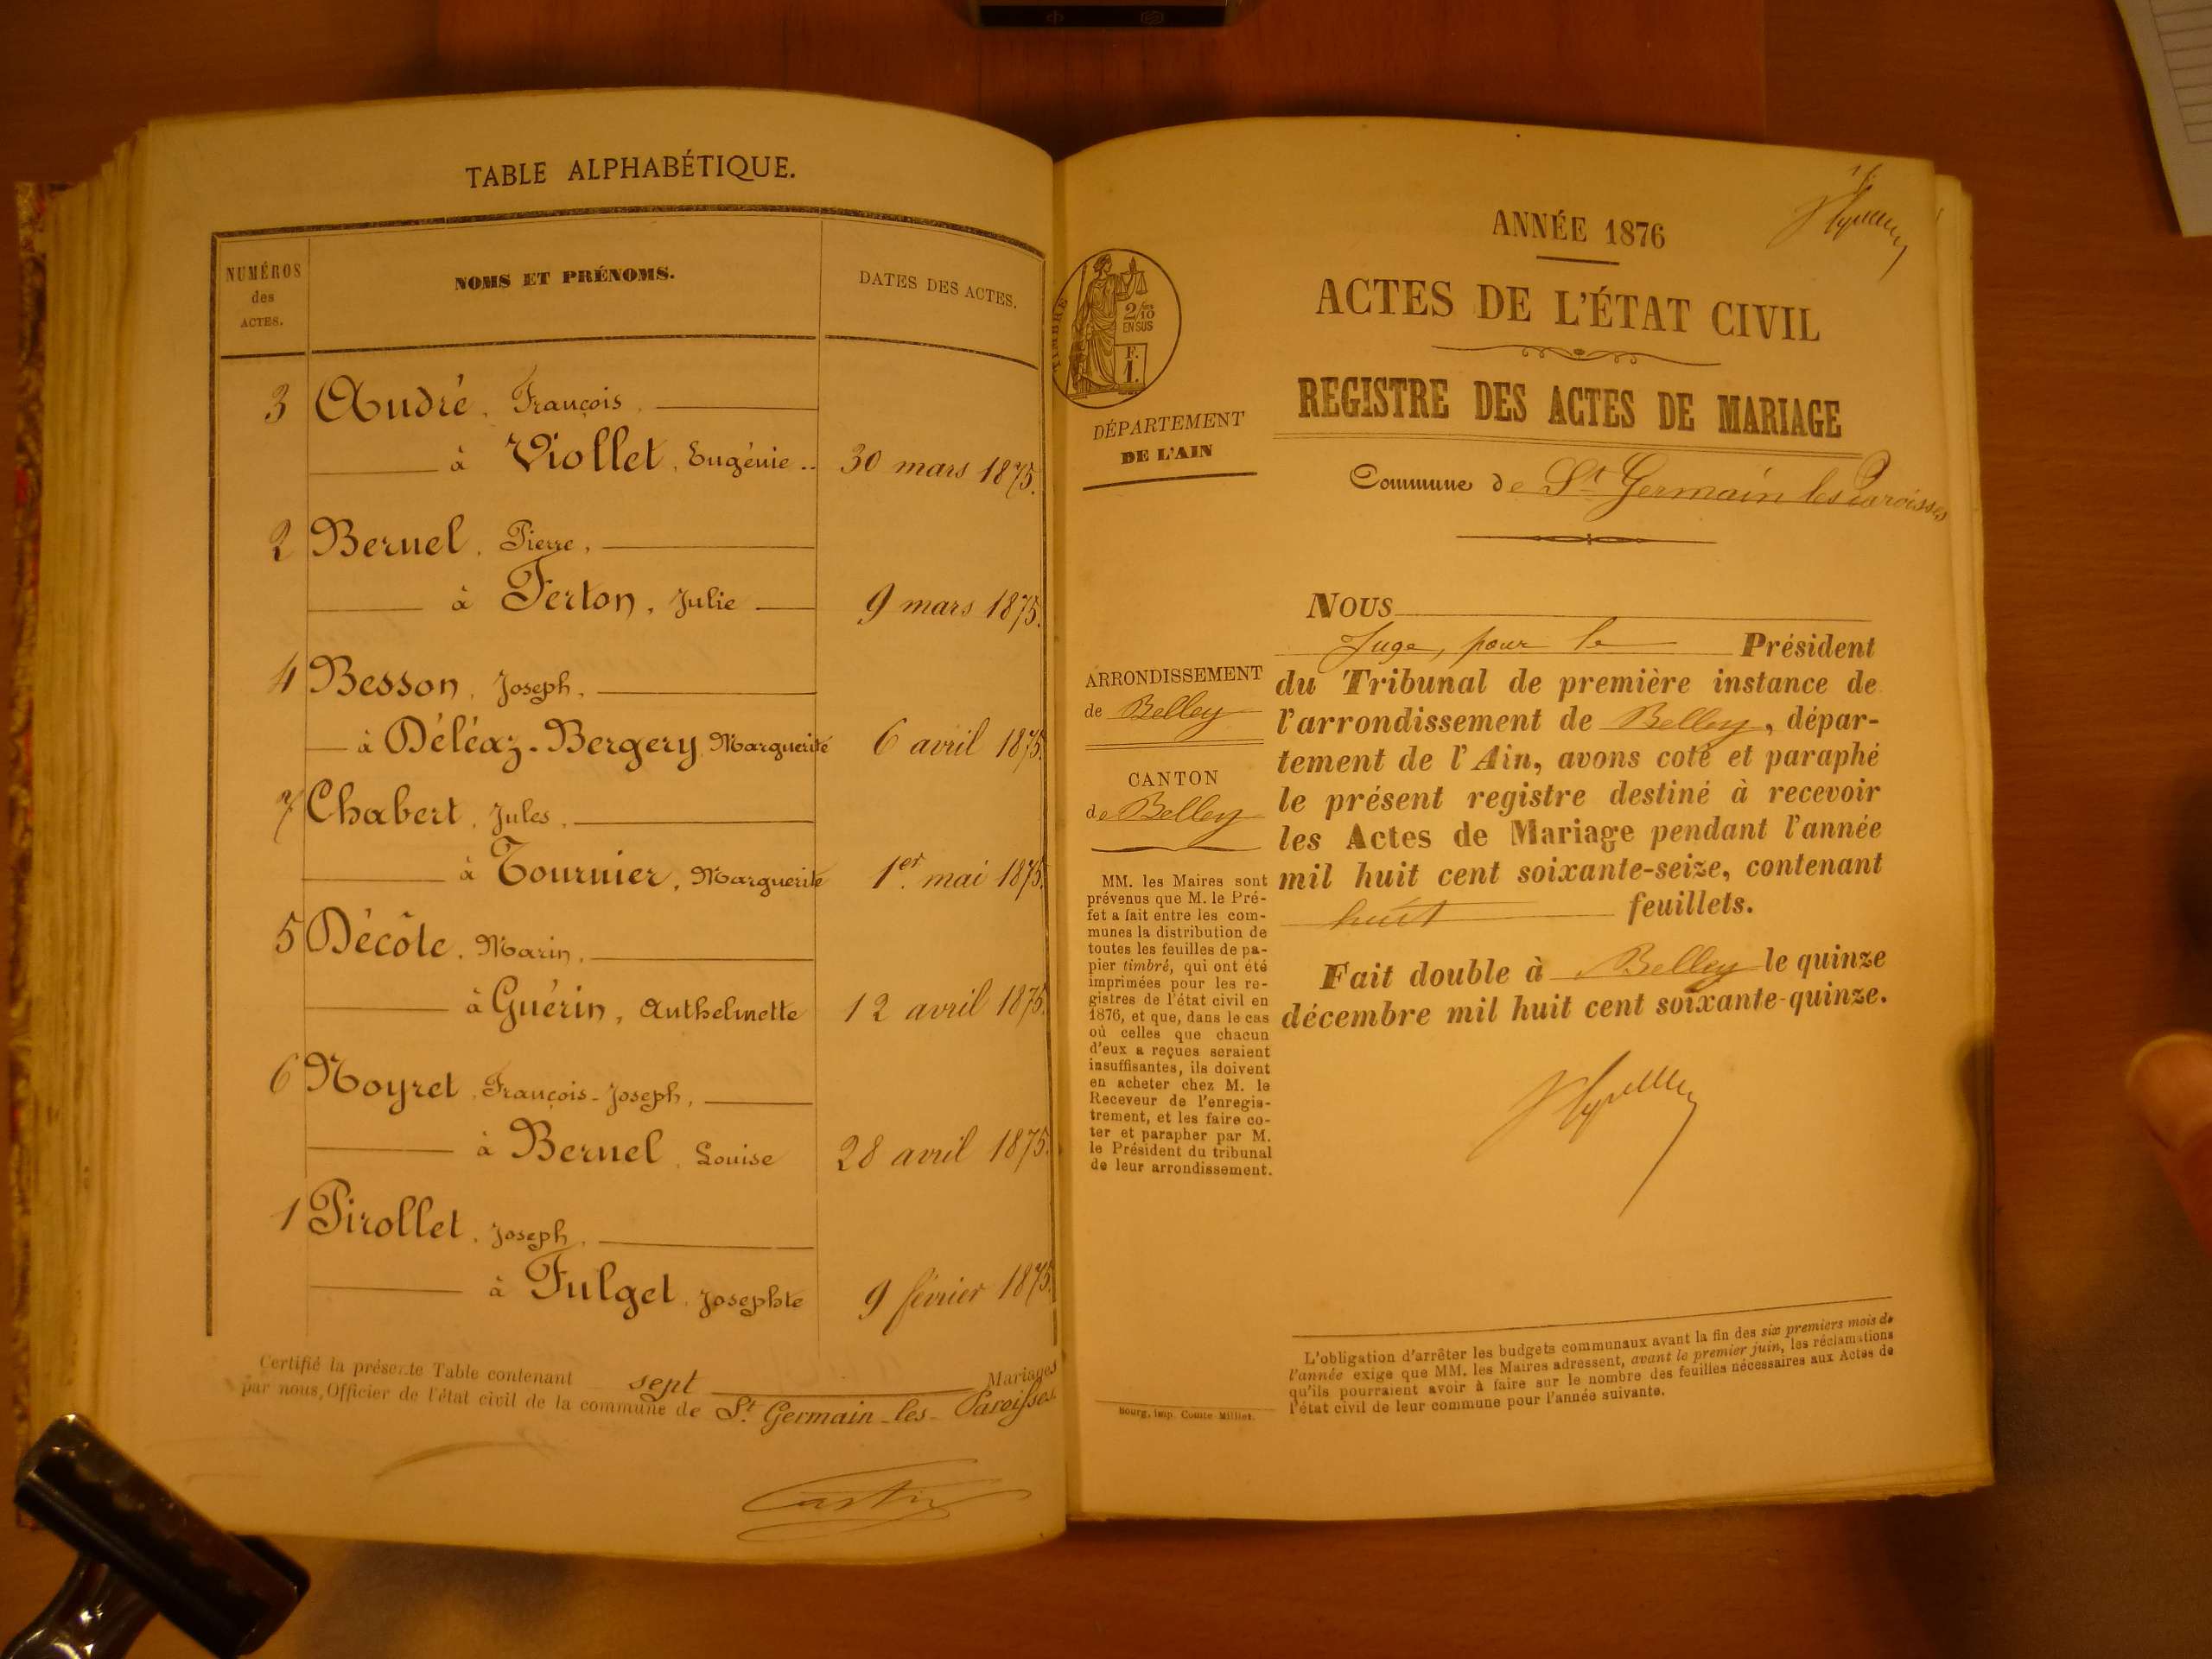 TABLE ALPHABÉTIQUE.
NUMÉROS
des
ACTES.
NOMS ET PRÉNOMS.
DATES DES ACTES.
3 André, François,
à Viollet, Eugénie .. 30 mars 1875.
2 Bernel, Pierre,
à Ferton, Julie 9 mars 1875.
4 Besson, Joseph,
à Déléaz-Bergery, Marguerite 6 avril 1875.
7 Chabert, Jules,
à Tournier, Marguerite 1er mai 1875.
5 Décôte, Marin,
à Guérin, Anthelmette 12 avril 1875.
6 Noyret, François-Joseph,
à Bernel, Louise 28 avril 1875.
1 Pirollet, Joseph,
à Fulget, Josephte 9 février 1875.
Certifié la présente Table contenant sept Mariages
par nous, Officier de l'état civil de la commune de St. Germain-les-Paroisses.
ANNÉE 1876
ACTES DE L'ÉTAT CIVIL
REGISTRE DES ACTES DE MARIAGE
Commune de St Germain les Paroisses
TIMBRE
2/10
EN SUS
F.
1.
DÉPARTEMENT
DE L'AIN
ARRONDISSEMENT
de Belley
CANTON
de Belley
MM. les Maires sont
prévenus que M. le Pré-
fet a fait entre les com-
munes la distribution de
toutes les feuilles de pa-
pier timbré, qui ont été
imprimées pour les re-
gistres de l'état civil en
1876, et que, dans le cas
où celles que chacun
d'eux a reçues seraient
insuffisantes, ils doivent
en acheter chez M. le
Receveur de l'enregis-
trement, et les faire co-
ter et parapher par M.
le Président du tribunal
de leur arrondissement.
NOUS
Juge, pour le Président
du Tribunal de première instance de
l'arrondissement de Belley, dépar-
tement de l'Ain, avons coté et paraphé
le présent registre destiné à recevoir
les Actes de Mariage pendant l'année
mil huit cent soixante-seize, contenant
huit feuillets.
Fait double à Belley le quinze
décembre mil huit cent soixante-quinze.
L'obligation d'arrêter les budgets communaux avant la fin des six premiers mois de
l'année exige que MM. les Maires adressent, avant le premier juin, les réclamations
qu'ils pourraient avoir à faire sur le nombre des feuilles nécessaires aux Actes de
l'état civil de leur commune pour l'année suivante.
Bourg, imp. Comte-Milliet.